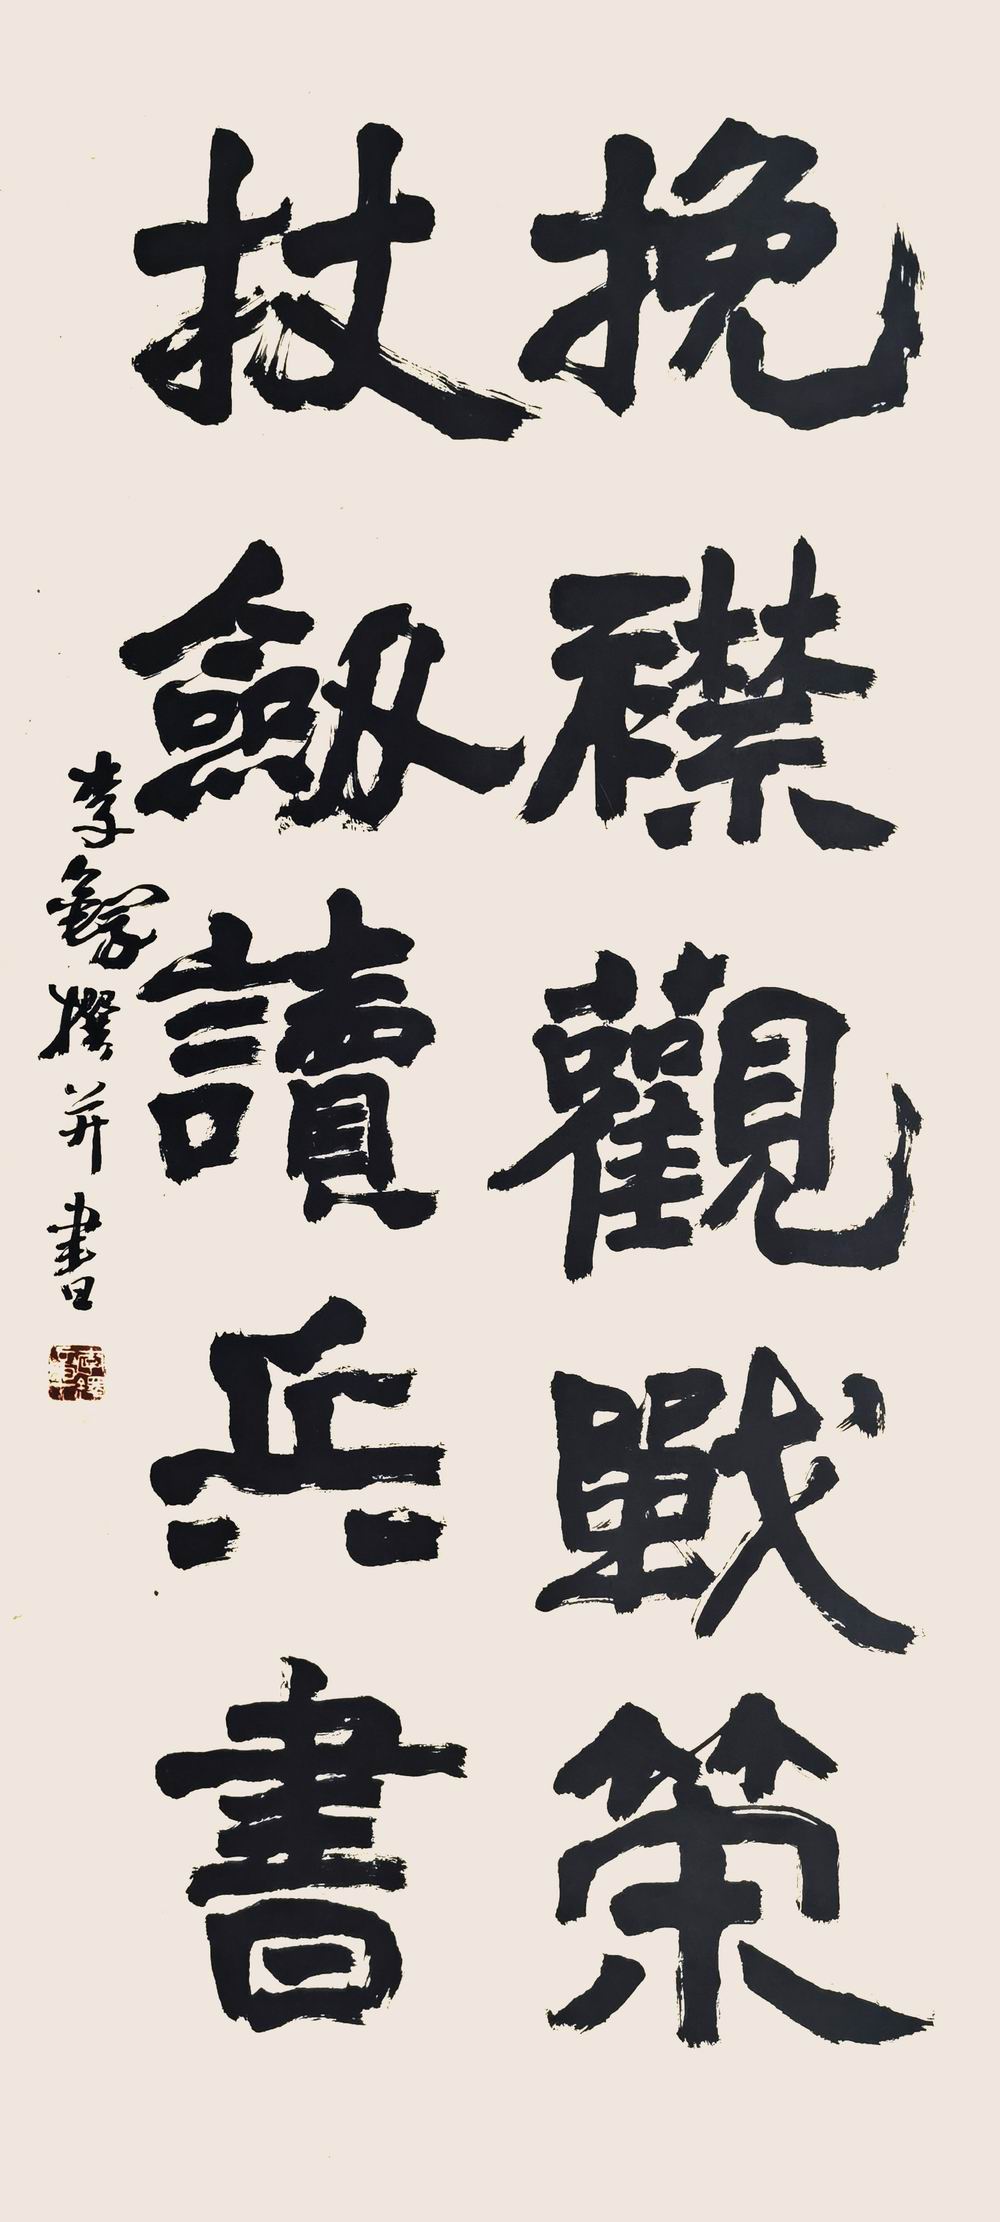 挽襟觀戰策
杖劒讀兵書
李鐸撰并書